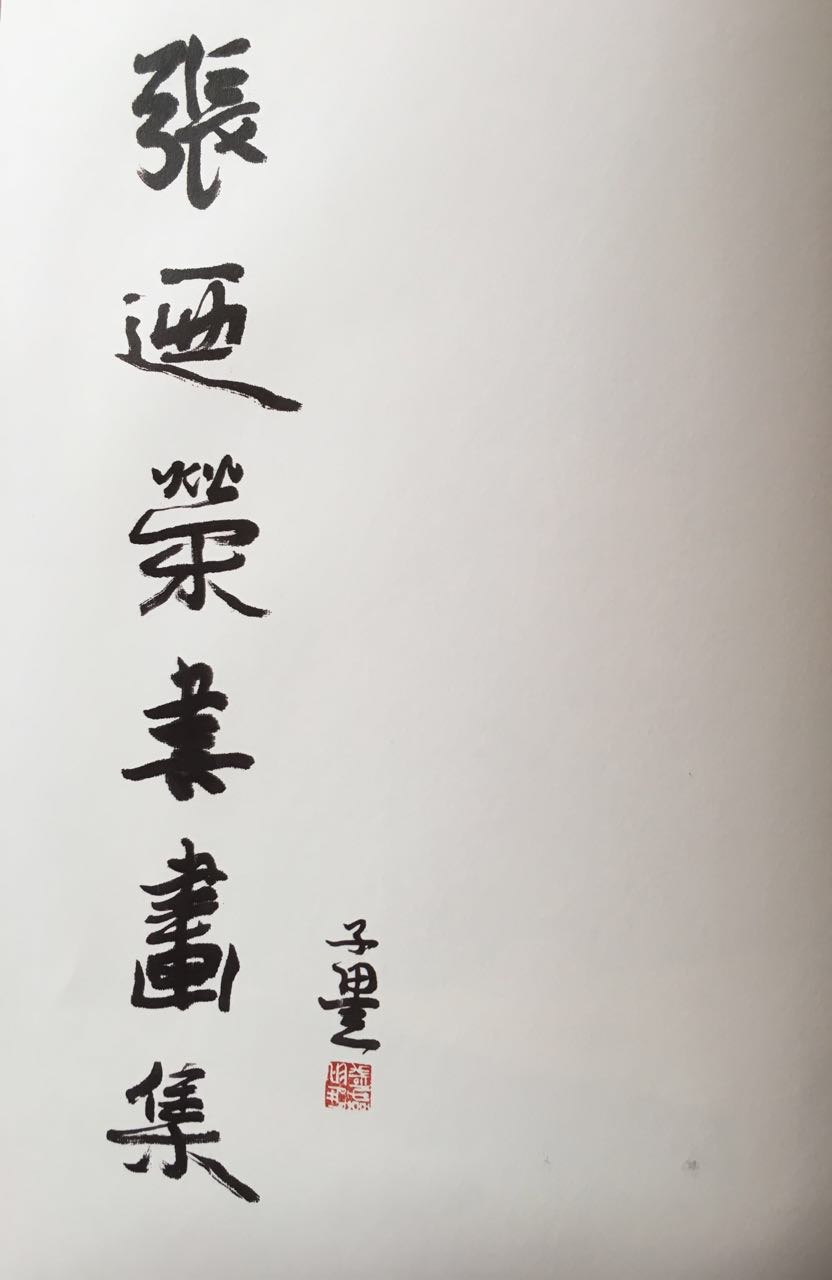 張迺榮書畫集
子